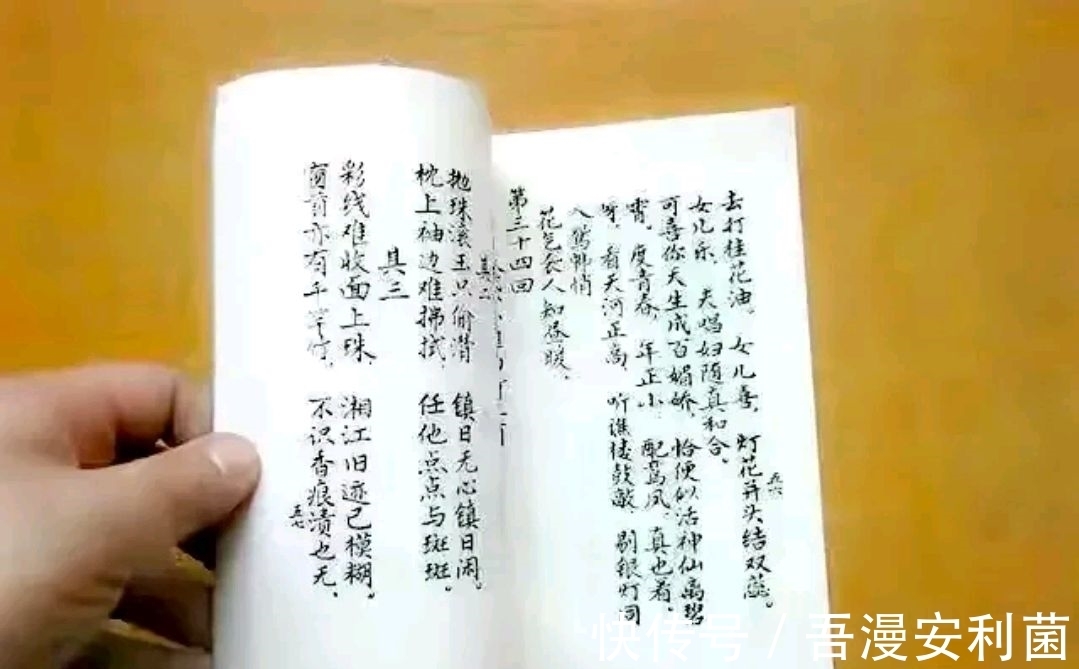 去打桂花油。 女儿喜, 灯花并头结双蕊。
女儿乐, 夫唱妇随真和合。
可喜你天生成百媚娇, 恰便似活神仙离碧
霄。度青春, 年正小, 配鸾凤, 真也着。
呀, 看天河正高, 听谯楼鼓敲 剔银灯同
入鸳帏悄
花气袭人知昼暖,
第三十四回
五六
其二
抛珠滚玉只偷潸 镇日无心镇日闲。
枕上袖边难拂拭, 任他点点与斑斑。
其三
彩线难收面上珠, 湘江旧迹已模糊。
窗前亦有千竿竹, 不识香痕渍也无。
五七
快传号 / 吾漫安利菌